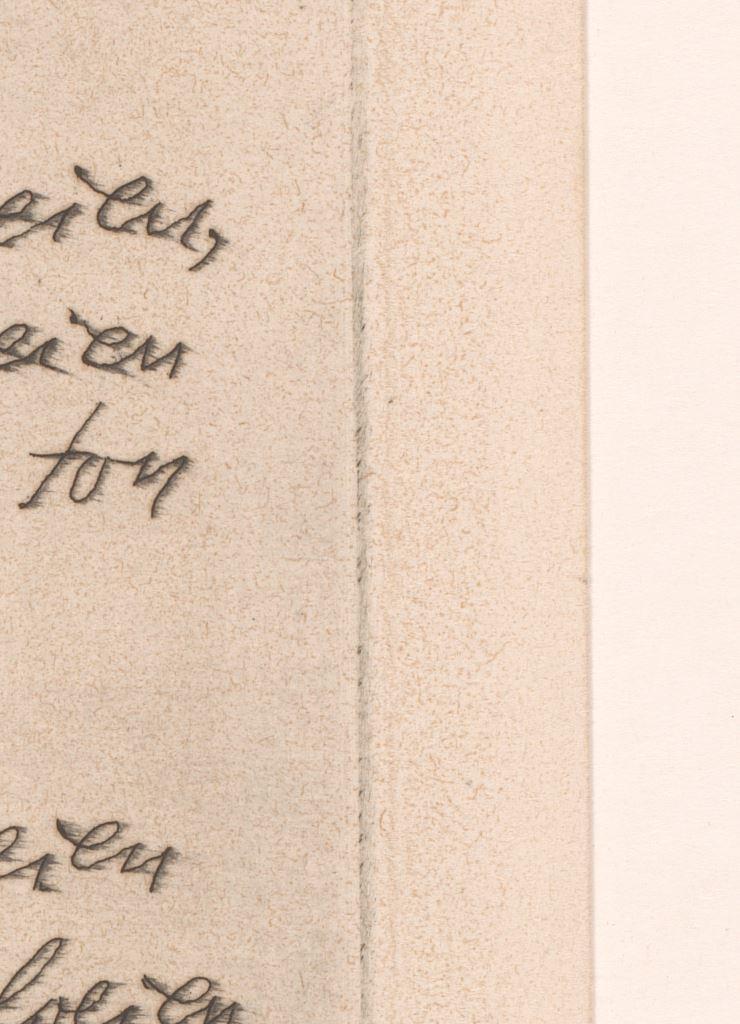 eien,
eien
ton
eien
loeien